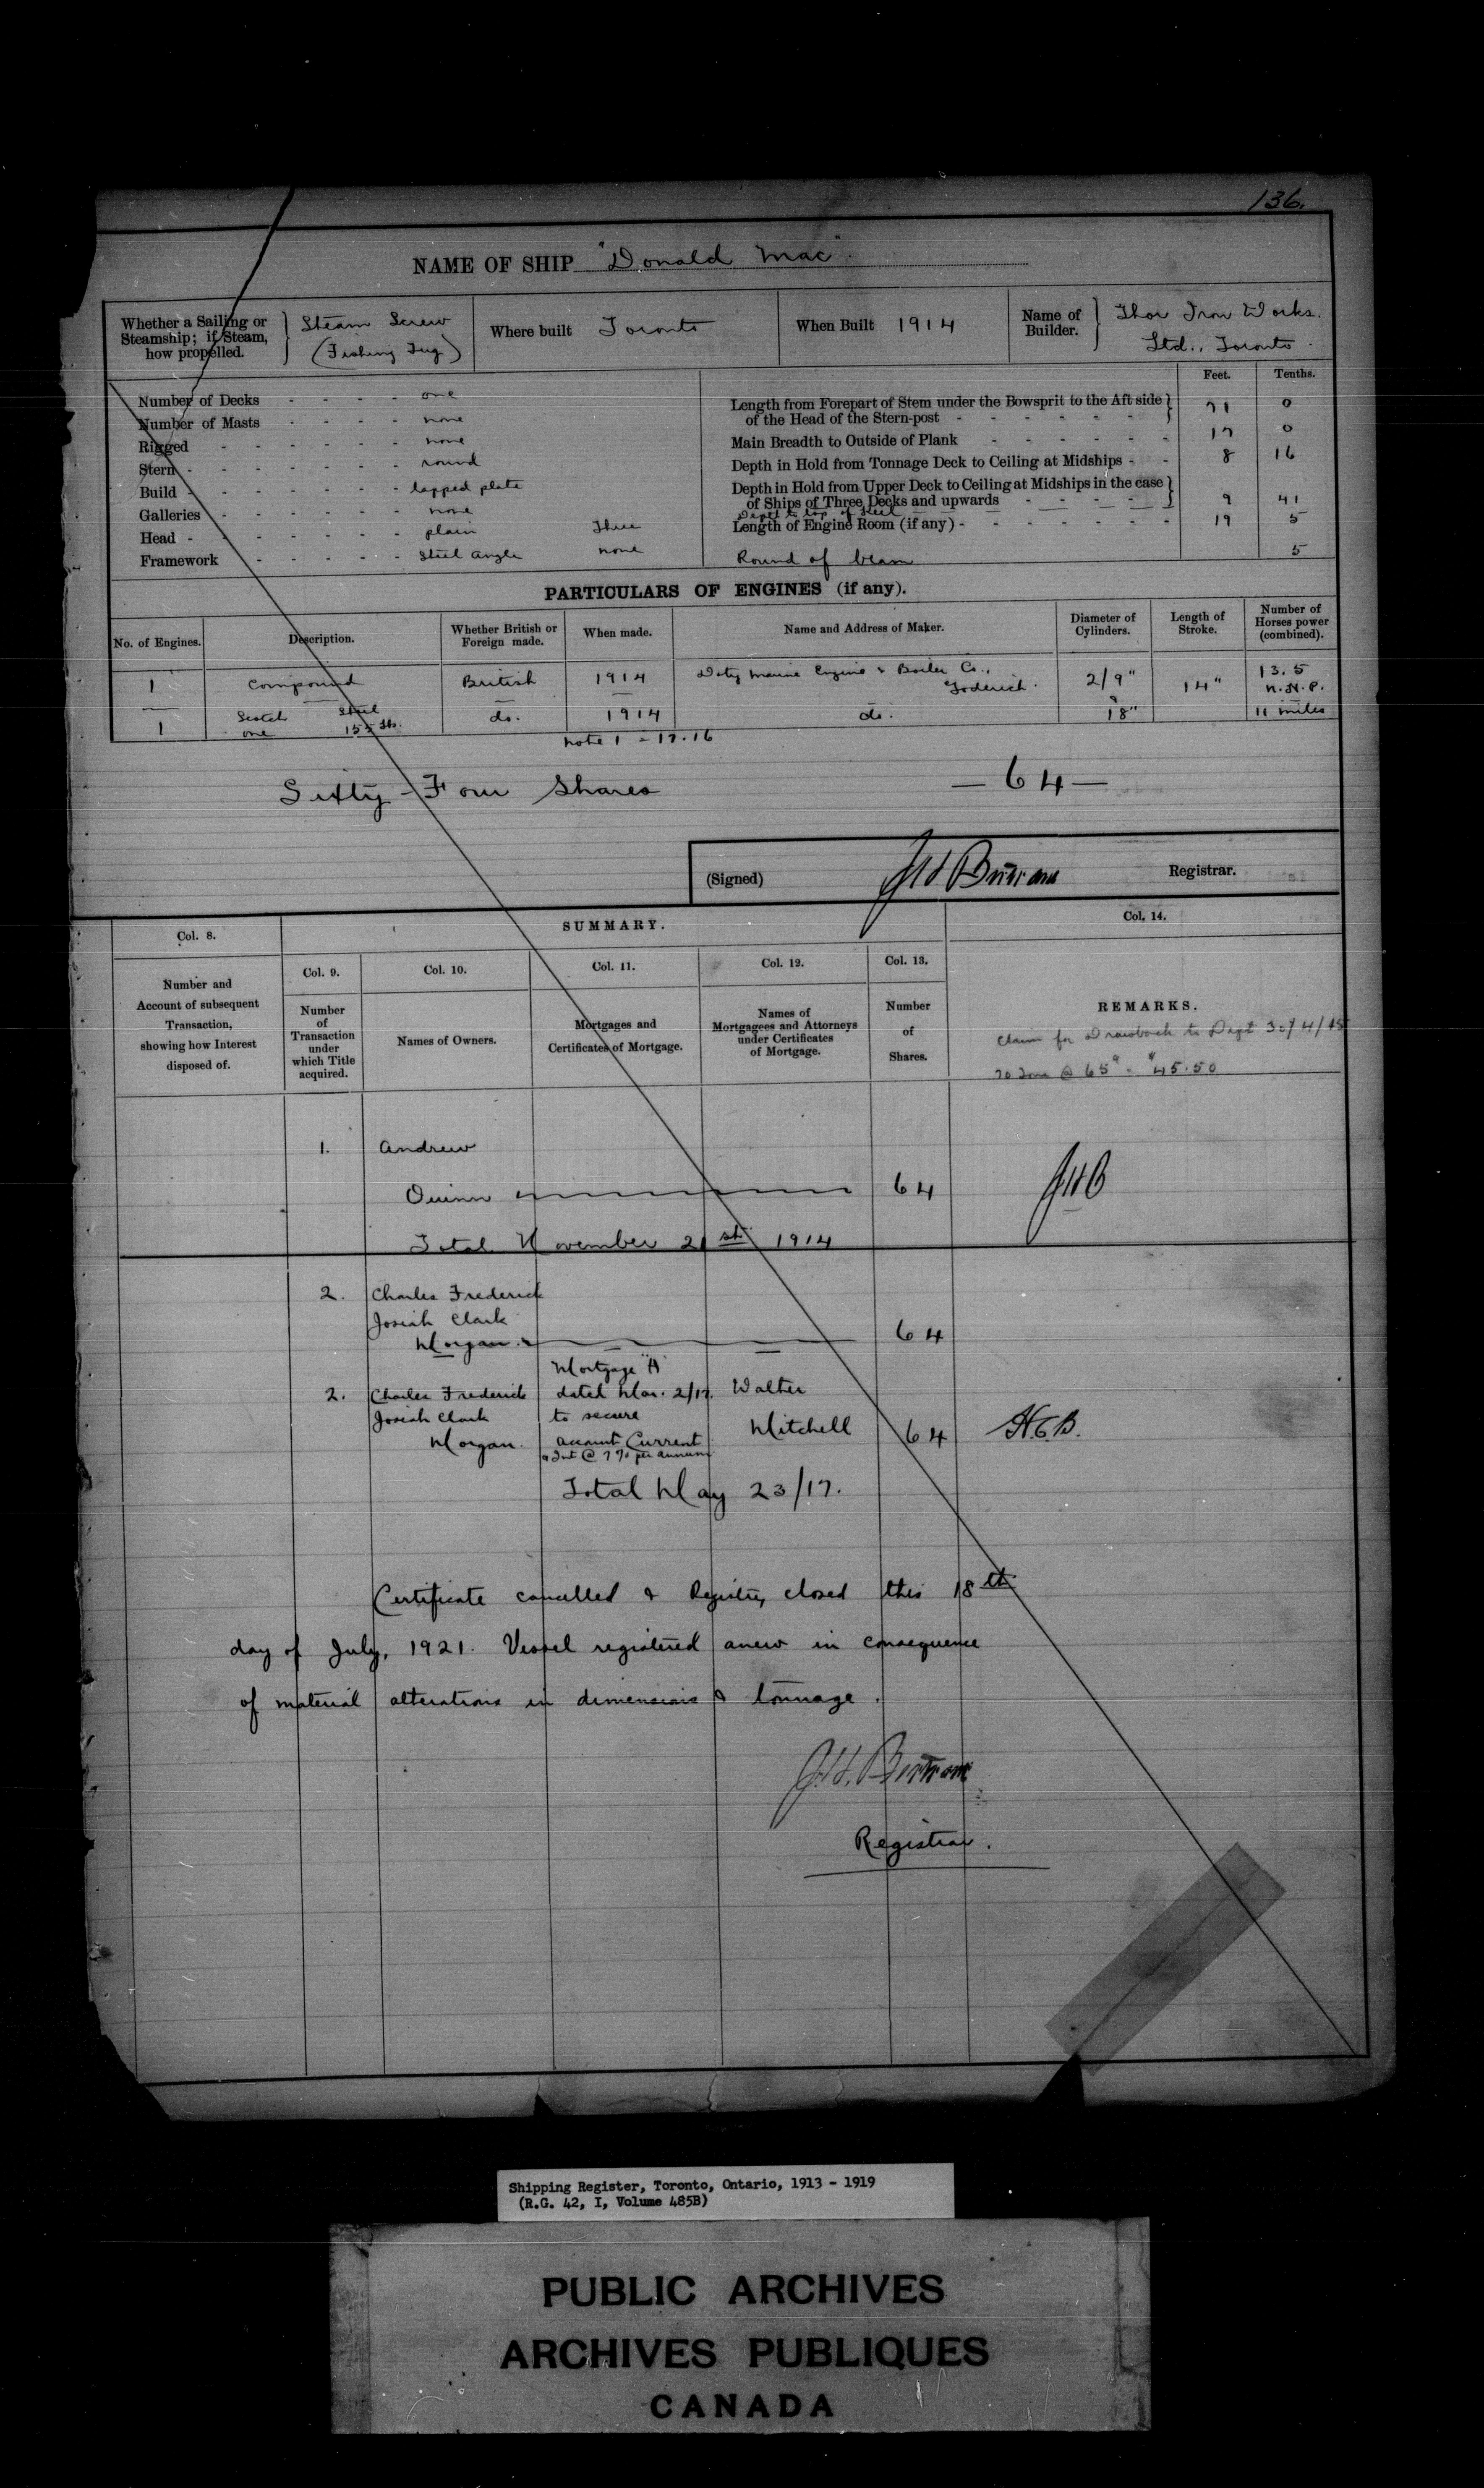 136.
NAME OF SHIP "Donald Mac".
Whether a Sailing or Steamship; if Steam, how propelled. } Steam Screw (Fishing Tug)
Where built Toronto
When Built 1914
Name of Builder. } Thor Iron Works. Ltd., Toronto.
Feet. Tenths.
Number of Decks - - - - one
Number of Masts - - - - none
Rigged - - - - - none
Stern - - - - - - round
Build - - - - - - lapped plate
Galleries - - - - - none
Head - - - - - - plain Three
Framework - - - - Steel angle none
Length from Forepart of Stem under the Bowsprit to the Aft side
of the Head of the Stern-post - - - - - - 71 0
Main Breadth to Outside of Plank - - - - - - 17 0
Depth in Hold from Tonnage Deck to Ceiling at Midships - - 8 16
Depth in Hold from Upper Deck to Ceiling at Midships in the case
of Ships of Three Decks and upwards - - - - 9 41
Depth to top of
Length of Engine Room (if any) - - - - - - 19 5
Round of beam 5
PARTICULARS OF ENGINES (if any).
No. of Engines. Description. Whether British or Foreign made. When made. Name and Address of Maker. Diameter of Cylinders. Length of Stroke. Number of Horses power (combined).
1 Compound British 1914 Doty Marine Engine & Boiler Co., Goderich. 2/9" 14" 13.5 N.H.P.
1 Scotch one Steel 155 lbs. do. 1914 do. & 18" 11 miles
note 1 = 17.16
Sixty-Four Shares — 64 —
(Signed) J H Bertram Registrar.
Col. 8. SUMMARY. Col. 14.
Col. 9. Col. 10. Col. 11. Col. 12. Col. 13.
Number and Account of subsequent Transaction, showing how Interest disposed of.
Number of Transaction under which Title acquired.
Names of Owners.
Mortgages and Certificates of Mortgage.
Names of Mortgagees and Attorneys under Certificates of Mortgage.
Number of Shares.
REMARKS.
Claim for Drawback to Dept 30/4/15
70 Tons @ 65¢ = $45.50
1. Andrew
Quinn 64 JHB
Total November 21st 1914
2. Charles Frederick
Josiah Clark
Morgan. 64
Mortgage "A"
2. Charles Frederick dated Mar. 2/17. Walter
Josiah Clark to secure Mitchell
Morgan. account Current 64 H.C.B.
& Int @ 7% per annum
Total May 23/17.
Certificate cancelled & Registry closed this 18th
day of July, 1921. Vessel registered anew in consequence
of material alterations in dimensions & tonnage.
J.H. Bertram
Registrar.
Shipping Register, Toronto, Ontario, 1913 - 1919
(R.G. 42, I, Volume 485B)
PUBLIC ARCHIVES
ARCHIVES PUBLIQUES
CANADA